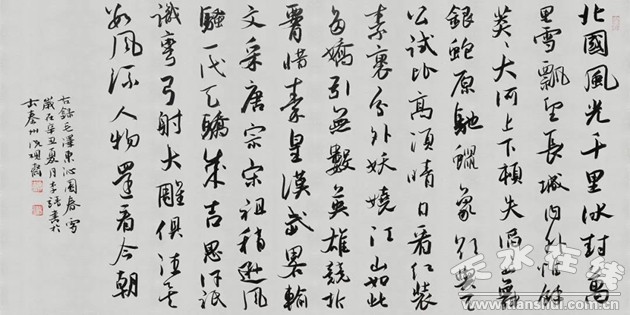 北國風光千里冰封萬
里雪飄望長城内外惟餘
莽〻大河上下頓失滔〻山舞
銀蛇原馳蠟象欲與天
公試比高須晴日看红装
素裹分外妖嬈江山如此
多嬌引無數英雄競折
腰惜秦皇漢武畧輸
文采唐宗宋祖稍遜風
騷一代天驕成吉思汗祇
識彎弓射大雕俱往矣
數風流人物還看今朝
右錄毛澤東沁園春雪
歲在辛丑夏月李書於
古秦州
天水在线
www.tianshui.com.cn